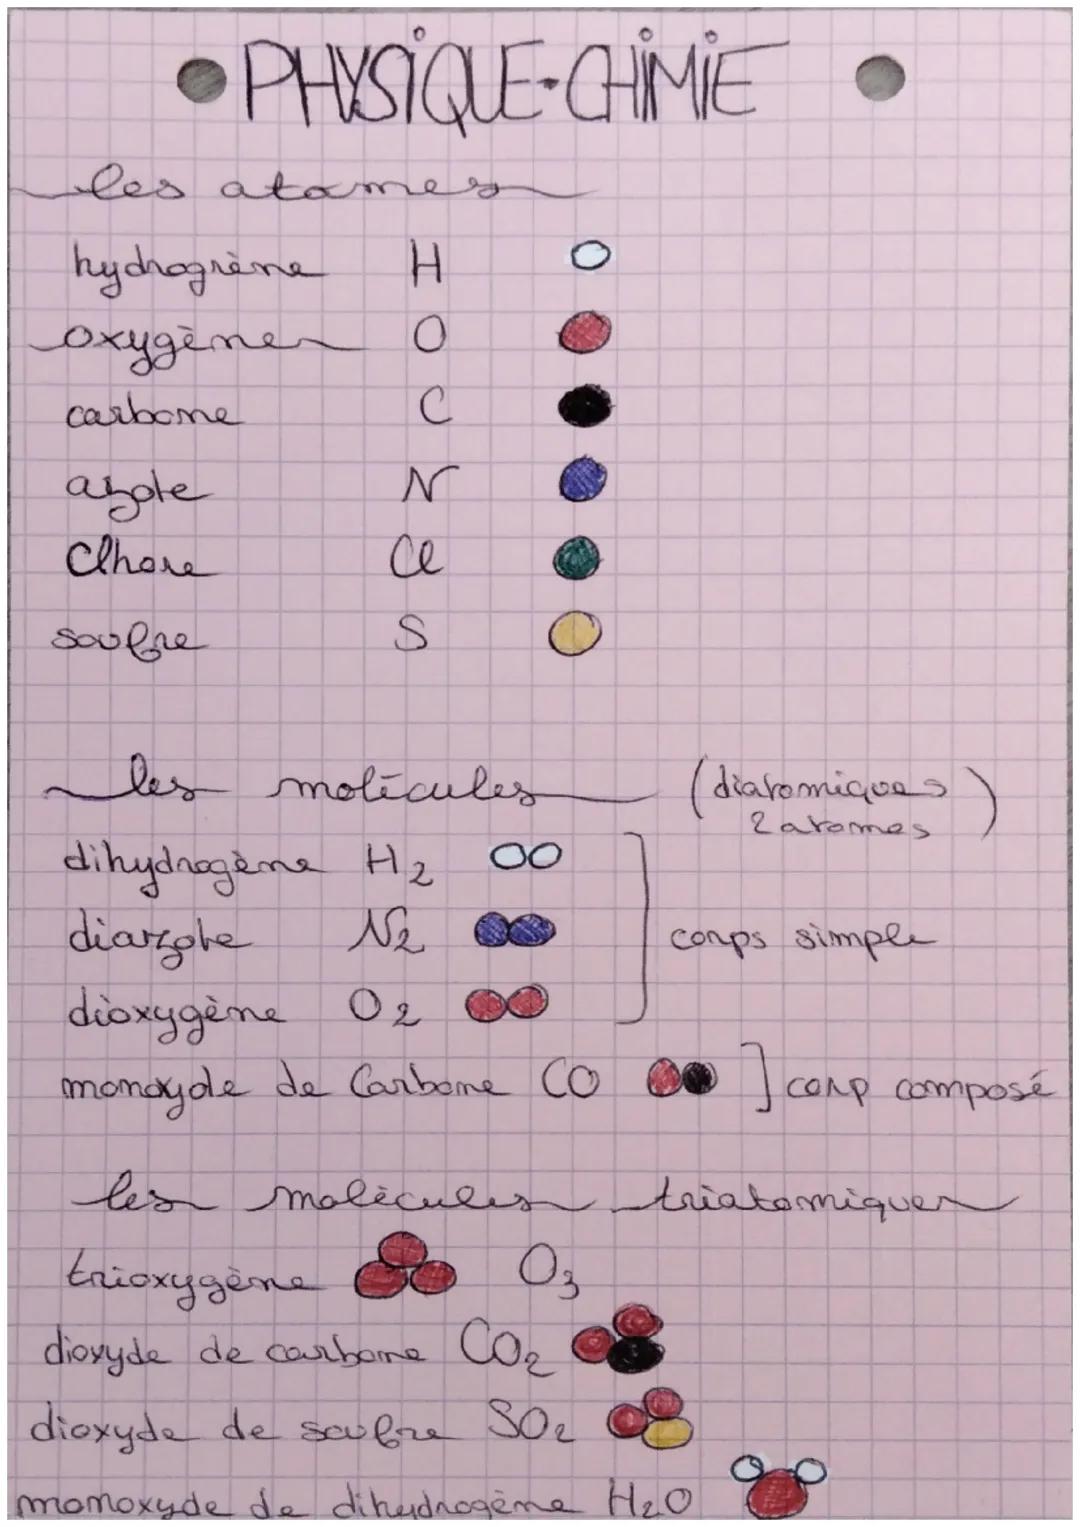 PHYSIQUE-CHIMIE
les atomes
hydrogène H
oxygène O
carbone C
azote N
Clhore Cl
soufre S
les molécules (diatomiques
2 atomes)
dihydrogène H2
diazote N2 corps simple
dioxygène O2
monoxyde de Carbone CO ] corp composé
les molécules triatomiques
trioxygène O3
dioxyde de carbone CO2
dioxyde de soufre SO2
monoxyde de dihydrogène H2O